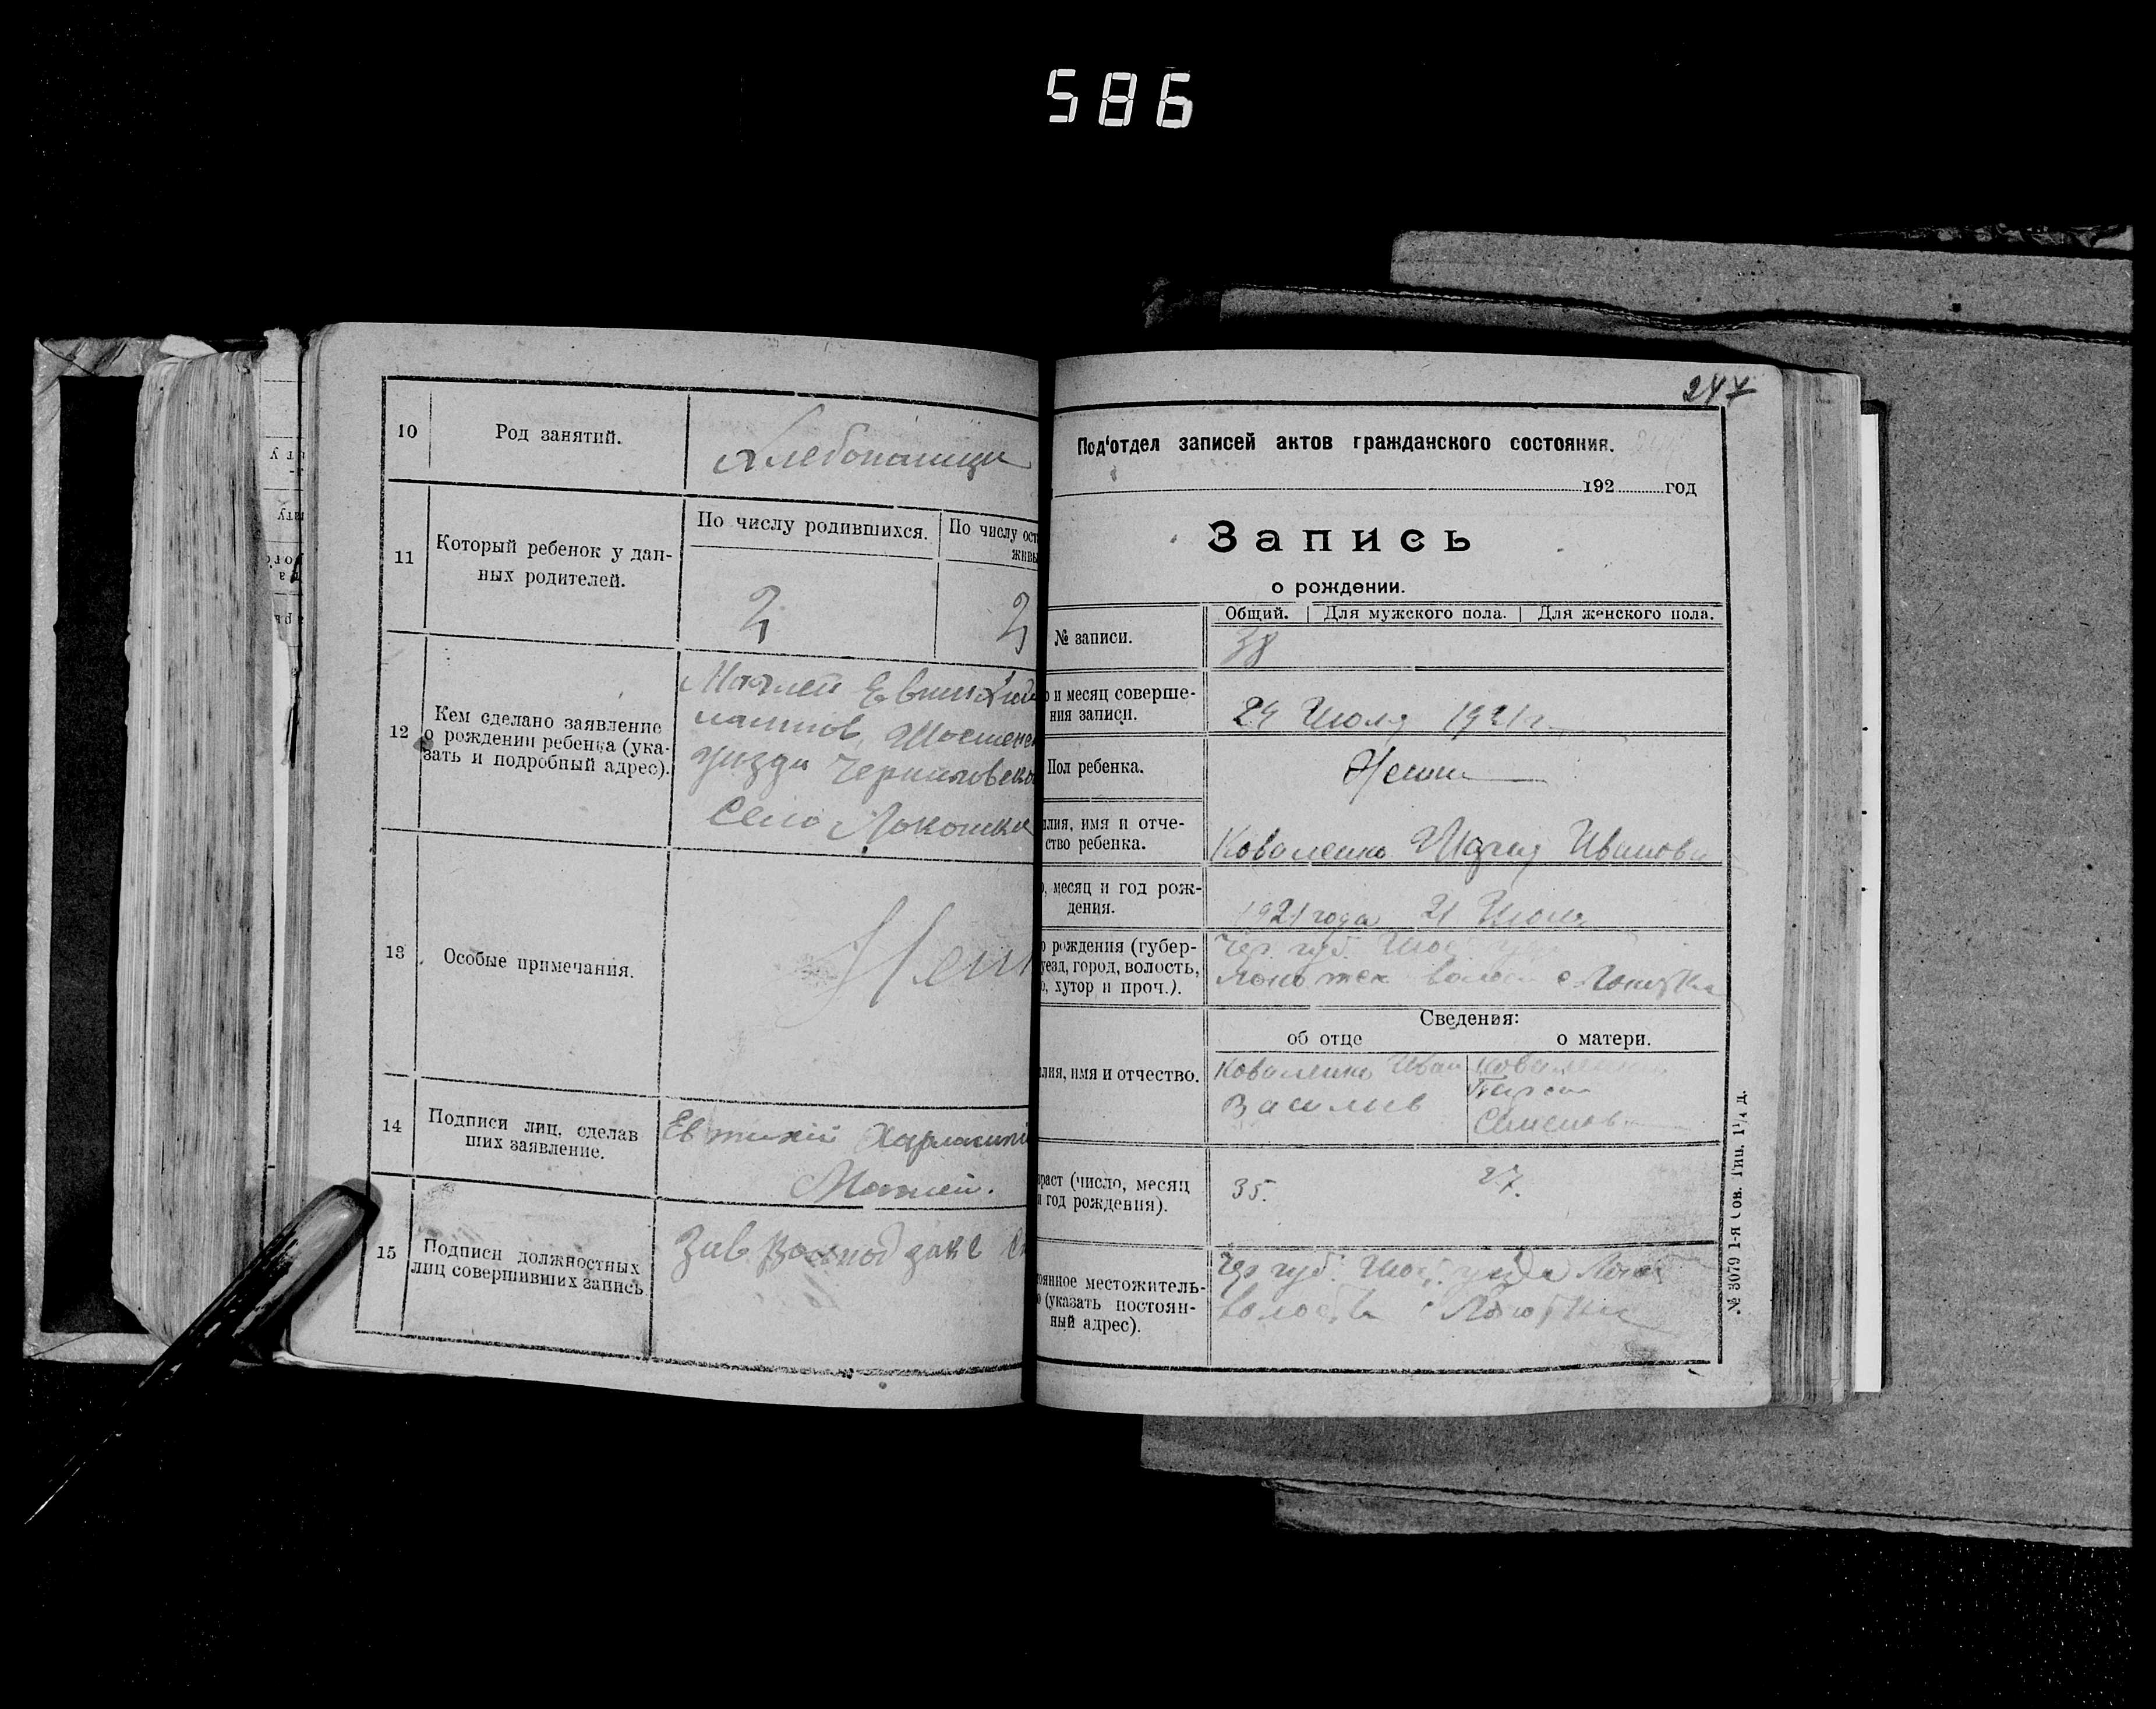 586
10
Род занятий.
Хлебопашци
11
Который ребенок у дан-
ных родителей.
По числу родившихся.
По числу ост
живы
2
2
12
Кем сделано заявление
о рождении ребенка (ука-
зать и подробный адрес).
уизда Черниговско
Село Локотки
13
Особые примечания.
Нет
14
Подписи лиц, сделав
ших заявление.
Евтихий
15
Подписи должностных
лиц совершивших запись
Зав.
247
Под'отдел записей актов гражданского состояния.
192 год
Запись
о рождении.
Общий. Для мужского пола. Для женского пола.
№ записи.
38
о и месяц соверше-
ния записи.
24 Июля 1921 г.
Пол ребенка.
Женск
лия, имя и отче-
ство ребенка.
Коваленко Мария Иванова
о, месяц и год рож-
дения.
1921 года 21 Июля
о рождения (губер-
уезд, город, волость,
о, хутор и проч.).
Чер. губ.
Сведения:
об отце
о матери.
лия, имя и отчество.
Коваленко Иван
Васильев
Семенов
раст (число, месяц
и год рождения).
35.
27.
оянное местожитель-
о (указать постоян-
ный адрес).
Чер губ. уезда
№ 3079 1-я Сов. Тип. 1¼ д.